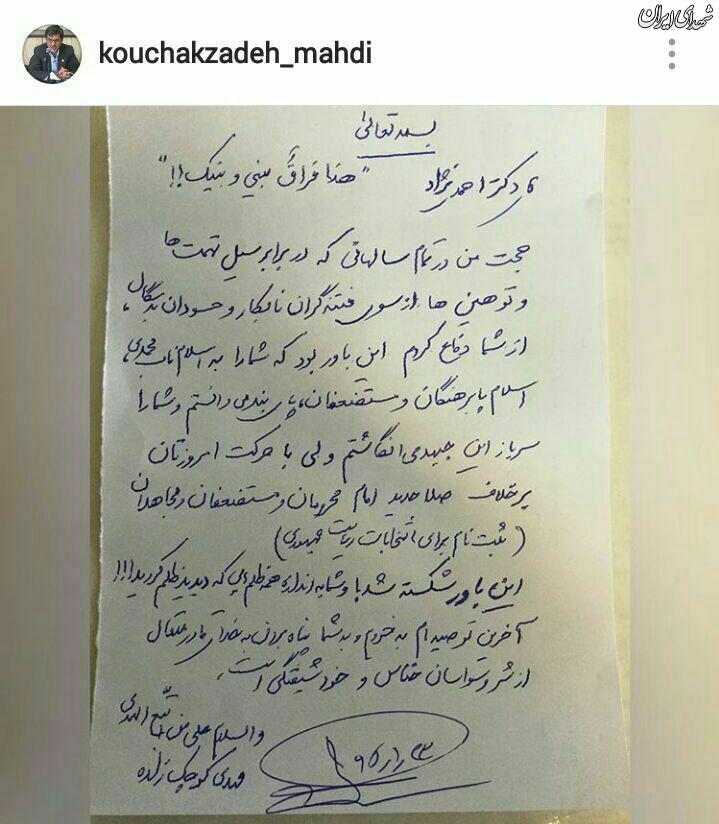 شهدای ایران
kouchakzadeh_mahdi
بسمه تعالی
دکتر احمدی نژاد "هذا فراقُ بینی و بینک!!"
حجت من در تمام سالهائی که در برابر سیل تهمت ها
و توهین ها از سوی فتنه گران نابکار و حسودان بدسگال،
از شما دفاع کردم این باور بود که شما را به اسلام ناب محمدی،
اسلام پابرهنگان و مستضعفان، پای بند می دانستم و شما را
سرباز این جبهه می انگاشتم ولی با حرکت امروزتان
برخلاف صلاحدید امام محرومان و مستضعفان و مجاهدان
(ثبت نام برای انتخابات ریاست جمهوری)
این باور شکسته شد با و شما به اندازه همه ظلم هایی که دیدید ظلم کردید!!!
آخرین توصیه ام به خودم و به شما پناه بردن به خدای قادر متعال
از شر وسواسان خناس و خودشیفتگی است.
والسلام علی من اتبع الهدی
مهدی کوچک زاده
۲۳ر۱ر۹۶